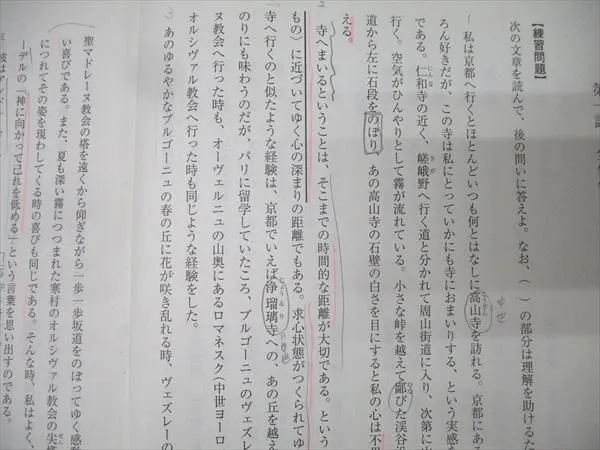 【練習問題】
次の文章を読んで、後の問いに答えよ。なお、（　）の部分は理解を助けるた
私は京都へ行くとほとんどいつも何とはなしに高山寺を訪れる。京都にある
ろん好きだが、この寺は私にとっていかにも寺におまいりする、という実感を
である。仁和寺の近く、嵯峨野へ行く道と分かれて周山街道に入り、次第に山
行く。空気がひんやりとして霧が流れている。小さな峠を越えて鄙びた渓谷沿
道から左に石段をのぼり、あの高山寺の石壁の白さを目にすると私の心は不思
える。
寺へまいるということは、そこまでの時間的な距離が大切である。という
もの）に近づいてゆく心の深まりの距離でもある。求心状態がつくられてゆ
寺へ行くのと似たような経験は、京都でいえば浄瑠璃寺への、あの丘を越え
のりにも味わうのだが、パリに留学していたころ、ブルゴーニュのヴェズレ
ヌ教会へ行った時も、オーヴェルニュの山奥にあるロマネスク（中世ヨーロ
オルシヴァル教会へ行った時も同じような経験をした。
あのゆるやかなブルゴーニュの春の丘に花が咲き乱れる時、ヴェズレーの
聖マドレーヌ教会の塔を遠くから仰ぎながら一歩一歩坂道をのぼってゆく感動
い喜びである。また、夏も深い霧につつまれた寒村のオルシヴァル教会の尖塔
につれてその姿を現わしてくる時の喜びも同じである。そんな時、私はよく、
ーデルの「神に向かって己れを低める」という言葉を思い出すのである。